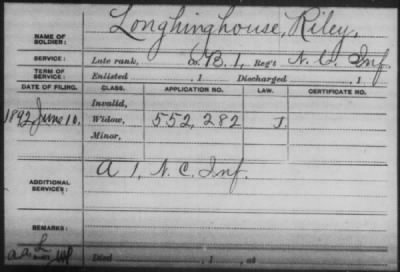 NAME OF SOLDIER: Longhinghouse, Riley,
SERVICE: Late rank, B. 1, Reg't N. C. Inf.
TERM OF SERVICE: Enlisted , 1 Discharged , 1
DATE OF FILING. CLASS. APPLICATION NO. LAW. CERTIFICATE NO.
Invalid,
1892 June 10. Widow, 552,282 J.
Minor,
ADDITIONAL SERVICES: A 1, N. C. Inf.
REMARKS: L
Died , 1 , at